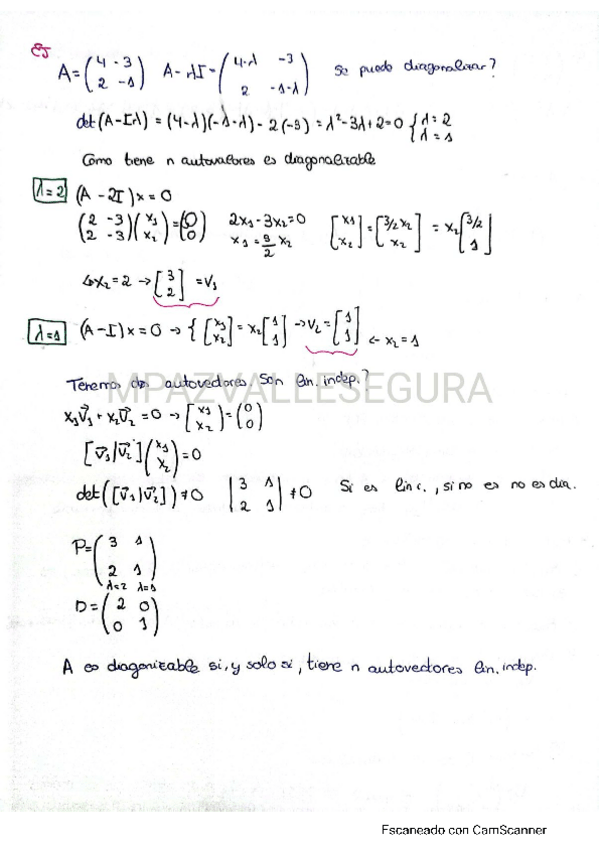 EJ
A = (4 -3 / 2 -1) A - λI = (4-λ -3 / 2 -1-λ) Se puede diagonalizar?
det(A-Iλ) = (4-λ)(-1-λ) - 2(-3) = λ² - 3λ + 2 = 0 { λ = 2 / λ = 1
Como tiene n autovalores es diagonalizable
λ=2 (A - 2I)x = 0
(2 -3 / 2 -3)(x₁ / x₂) = (0 / 0) 2x₁ - 3x₂ = 0 [x₁ / x₂] = [3/2 x₂ / x₂] = x₂[3/2 / 1]
x₁ = 3/2 x₂
↳ x₂ = 2 → [3 / 2] = v₁
λ=1 (A - I)x = 0 → { [x₁ / x₂] = x₂[1 / 1] → v₂ = [1 / 1] ← x₂ = 1
Tenemos dos autovectores Son lin. indep.?
MPAZVALLESEGURA
x₁v⃗₁ + x₂v⃗₂ = 0 → [x₁ / x₂] = (0 / 0)
[v⃗₁|v⃗₂](x₁ / x₂) = 0
det([v⃗₁|v⃗₂]) ≠ 0 |3 1 / 2 1| ≠ 0 Si es lin c., si no es no es dia.
P = (3 1 / 2 1)
λ=2 λ=1
D = (2 0 / 0 1)
A es diagonizable si, y solo si, tiene n autovectores lin. indep.
Escaneado con CamScanner